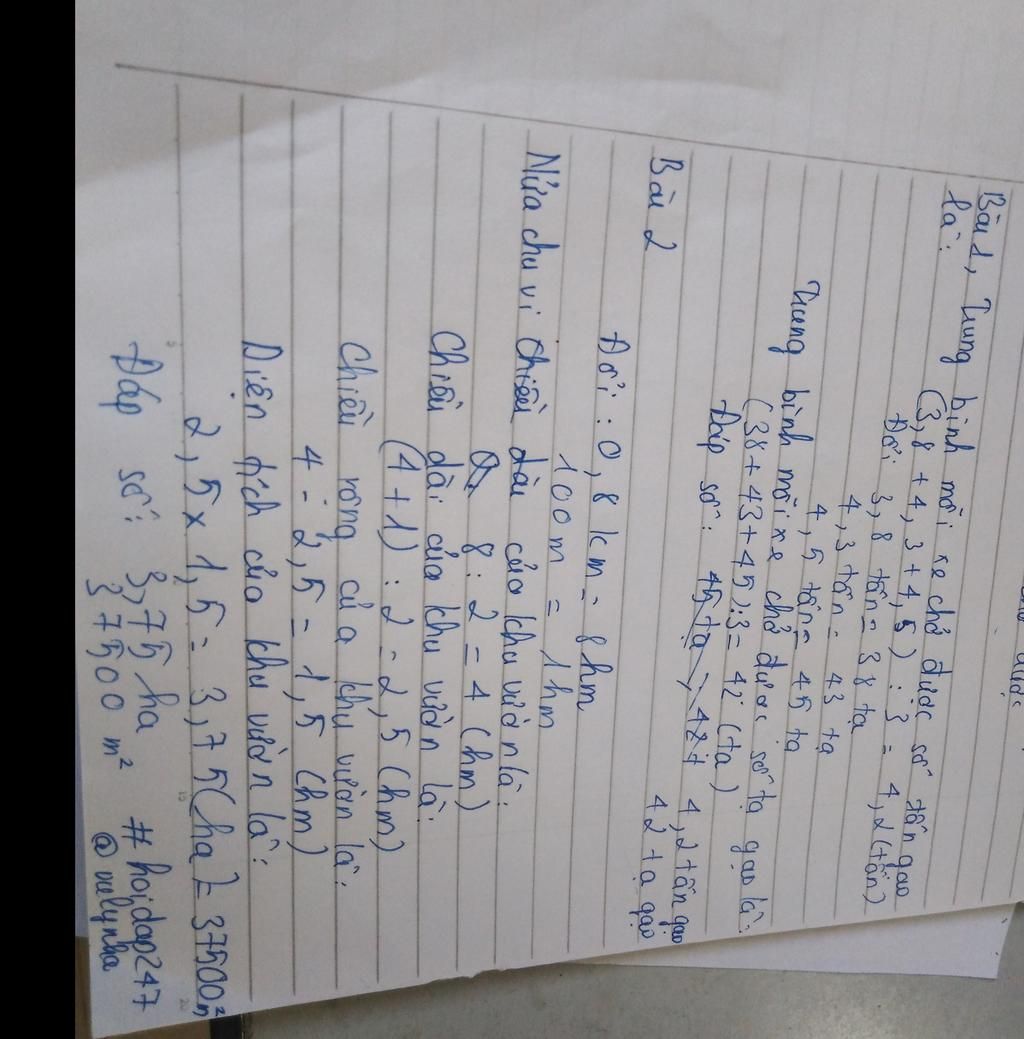 Bài 1, Trung bình mỗi xe chở được số tấn gạo
là:
(3,8 + 4,3 + 4,5) : 3 = 4,2 (tấn)
Đổi: 3,8 tấn = 38 tạ
4,3 tấn = 43 tạ
4,5 tấn = 45 tạ
Trung bình mỗi xe chở được số tạ gạo là:
(38 + 43 + 45) : 3 = 42 (tạ)
Đáp số: 4,2 tấn gạo
42 tạ gạo
Bài 2
Đổi: 0,8 km = 8 hm
100m = 1hm
Nửa chu vi chiều dài của khu vườn là:
8 : 2 = 4 (hm)
Chiều dài của khu vườn là:
(4 + 1) : 2 = 2,5 (hm)
Chiều rộng của khu vườn là:
4 - 2,5 = 1,5 (hm)
Diện tích của khu vườn là:
2,5 x 1,5 = 3,75 (ha) = 37500 m²
Đáp số: 3,75 ha
37500 m²
#hoidap247
@vulynha